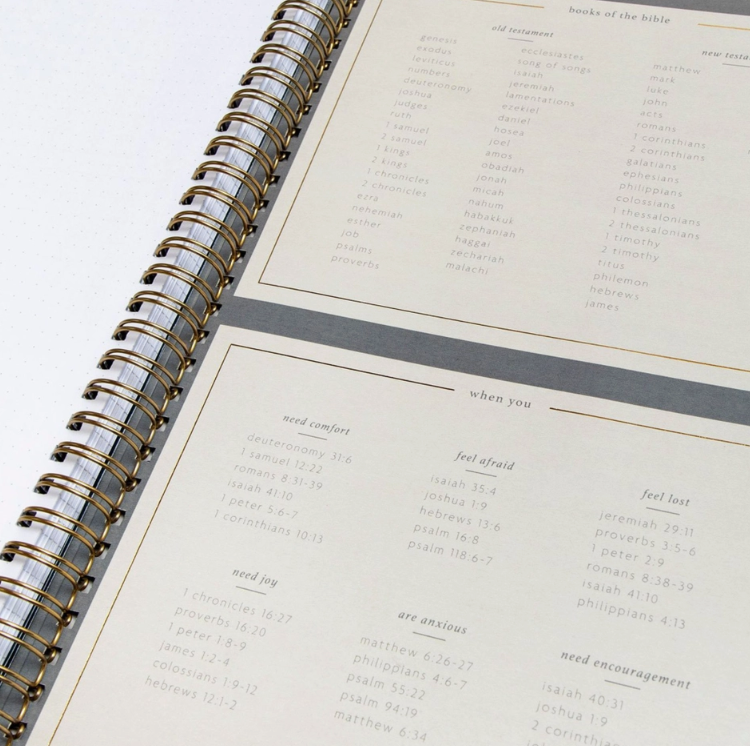 books of the bible
old testament
genesis
exodus
leviticus
numbers
deuteronomy
joshua
judges
ruth
1 samuel
2 samuel
1 kings
2 kings
1 chronicles
2 chronicles
ezra
nehemiah
esther
job
psalms
proverbs
ecclesiastes
song of songs
isaiah
jeremiah
lamentations
ezekiel
daniel
hosea
joel
amos
obadiah
jonah
micah
nahum
habakkuk
zephaniah
haggai
zechariah
malachi
new
matthew
mark
luke
john
acts
romans
1 corinthians
2 corinthians
galatians
ephesians
philippians
colossians
1 thessalonians
2 thessalonians
1 timothy
2 timothy
titus
philemon
hebrews
james
when you
need comfort
deuteronomy 31:6
1 samuel 12:22
romans 8:31-39
isaiah 41:10
1 peter 5:6-7
1 corinthians 10:13
feel afraid
isaiah 35:4
joshua 1:9
hebrews 13:6
psalm 16:8
psalm 118:6-7
feel lost
jeremiah 29:11
proverbs 3:5-6
1 peter 2:9
romans 8:38-39
isaiah 41:10
philippians 4:13
need joy
1 chronicles 16:27
proverbs 16:20
1 peter 1:8-9
james 1:2-4
colossians 1:9-12
hebrews 12:1-2
are anxious
matthew 6:26-27
philippians 4:6-7
psalm 55:22
psalm 94:19
matthew 6:34
need encouragement
isaiah 40:31
joshua 1:9
2 corinthians